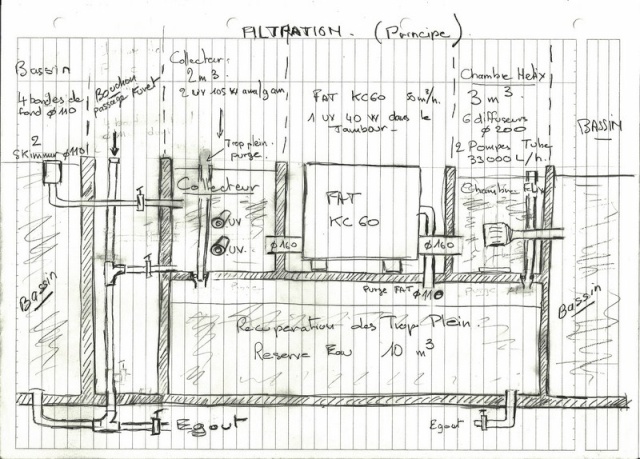 FILTRATION. (Principe)
Bassin
4 bondes de
fond ø110
2
Skimmer ø110
Bouchon
passage Furet
Collecteur:
2 m³
2 UV 105 W amalgam
Trop plein
purge.
FAT KC60 50 m³/h.
1 UV 40 W dans le
Tambour
Chambre Helix
3 m³
6 diffuseurs
ø 200
2 Pompes Tube
33000 L/h.
BASSIN
Collecteur
UV
UV
FAT
KC 60
ø160
ø160
Chambre
Purge FAT ø110
Bassin
Bassin
Recuperation des Trop Plein.
Reserve Eau 10 m³
Egout
Egout